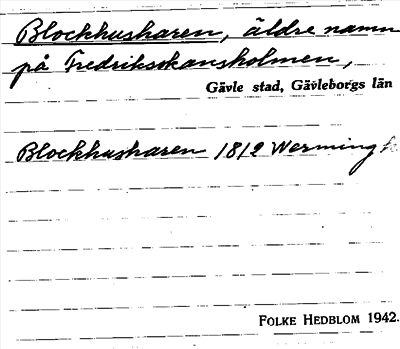 Blockhusharen, äldre namn
på Fredriksskansholmen,
Gävle stad, Gävleborgs län
Blockhusharen 1812 Werming k
FOLKE HEDBLOM 1942.